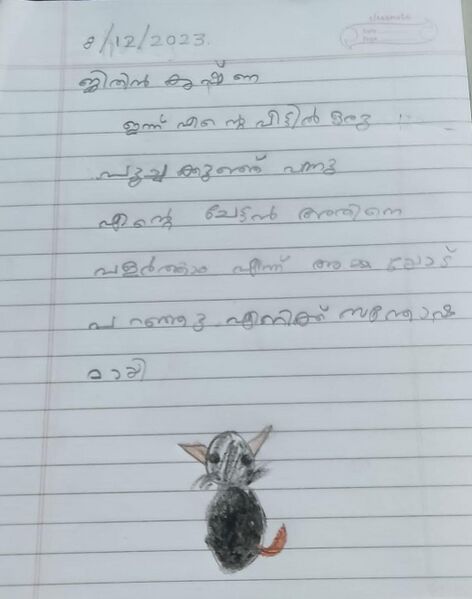 classmate
Date
Page
8/12/2023.
ജിതിൻ കൃഷ്ണ
ഇന്ന് എന്റെ വീട്ടിൽ ഒരു
പൂച്ച കുഞ്ഞ് വന്നു
എന്റെ ചേട്ടൻ അതിനെ
വളർത്താം എന്ന് അമ്മയോട്
പറഞ്ഞു. എനിക്ക് സന്തോഷ
മായി